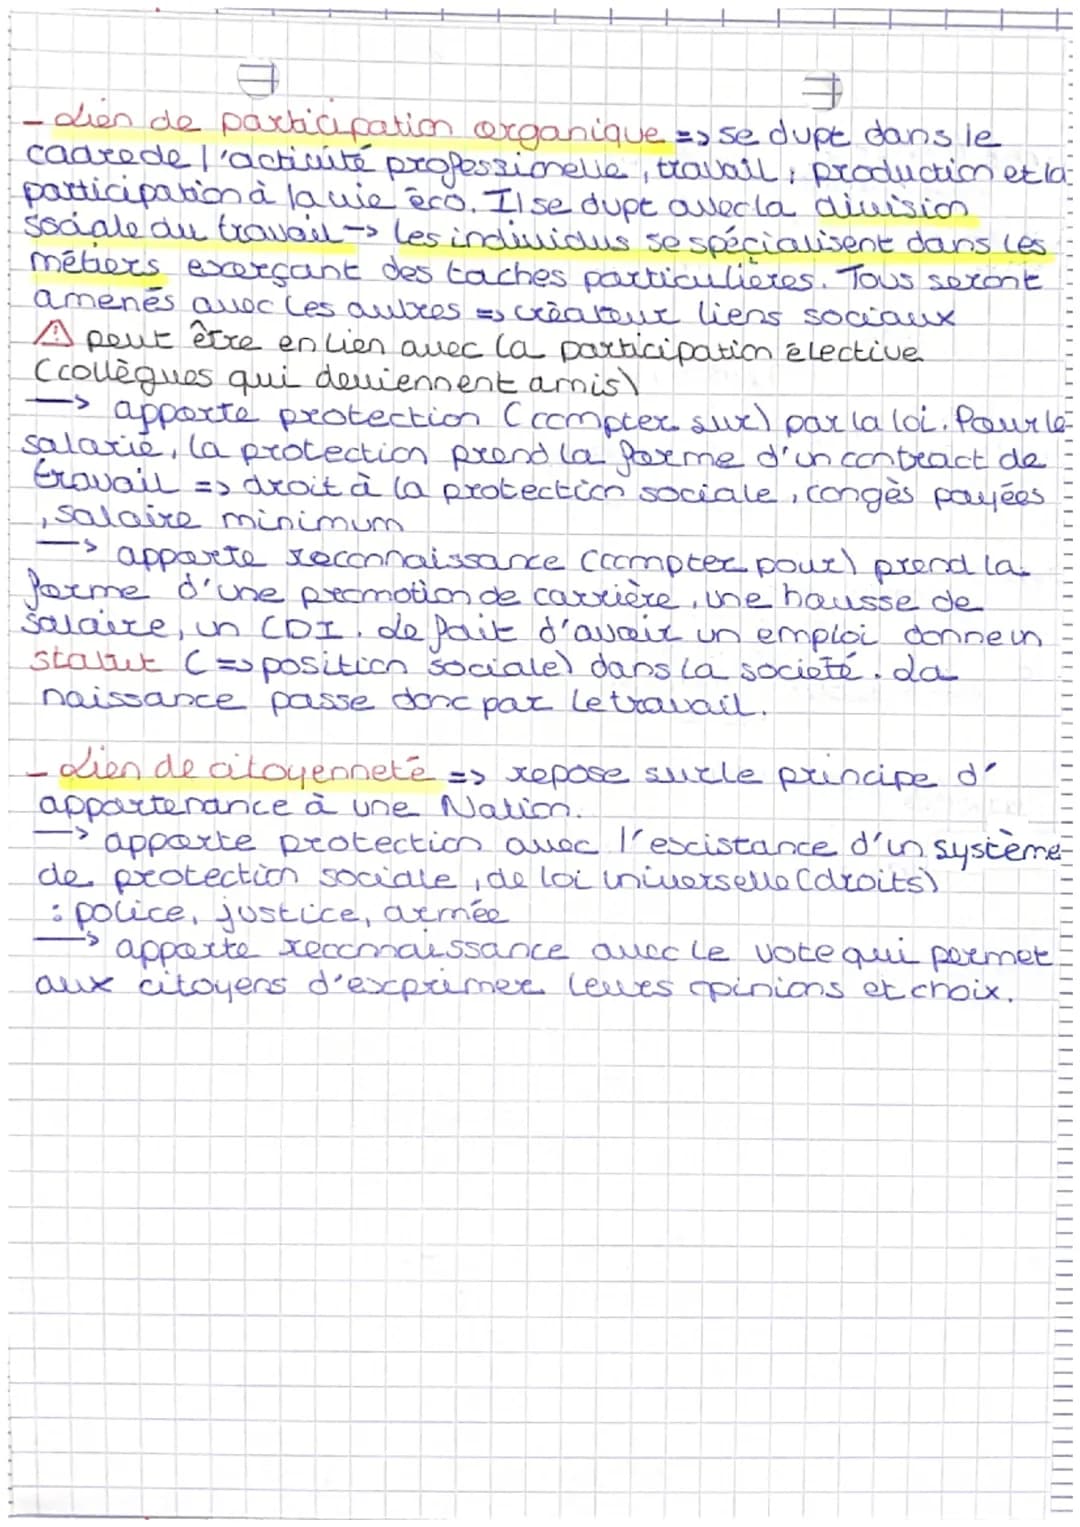 - Lien de participation organique => se dvpt dans le
cadre de l'activité professionelle, travail, production et la
participation à la vie éco. Il se dvpt avec la division
sociale du travail -> les individus se spécialisent dans les
métiers exerçant des taches particulières. Tous seront
amenés avec les autres => créateur liens sociaux
⚠ peut être en lien avec la participation élective
(collègues qui deviennent amis)
-> apporte protection (compter sur) par la loi. Pour le
salarié, la protection prend la forme d'un contract de
travail => droit à la protection sociale, congès payées
, salaire minimum
-> apporte reconnaissance (compter pour) prend la
forme d'une promotion de carrière, une hausse de
salaire, un CDI. Le fait d'avoir un emploi donne un
statut (=> position sociale) dans la société. La
naissance passe donc par le travail.
- Lien de citoyenneté => repose sur le principe d'
appartenance à une Nation.
-> apporte protection avec l'escistance d'un système
de protection sociale, de loi universelle (droits)
: police, justice, armée
-> apporte reconnaissance avec le vote qui permet
aux citoyens d'exprimer leurs opinions et choix.